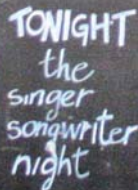 TONIGHT
the
singer
songwriter
night